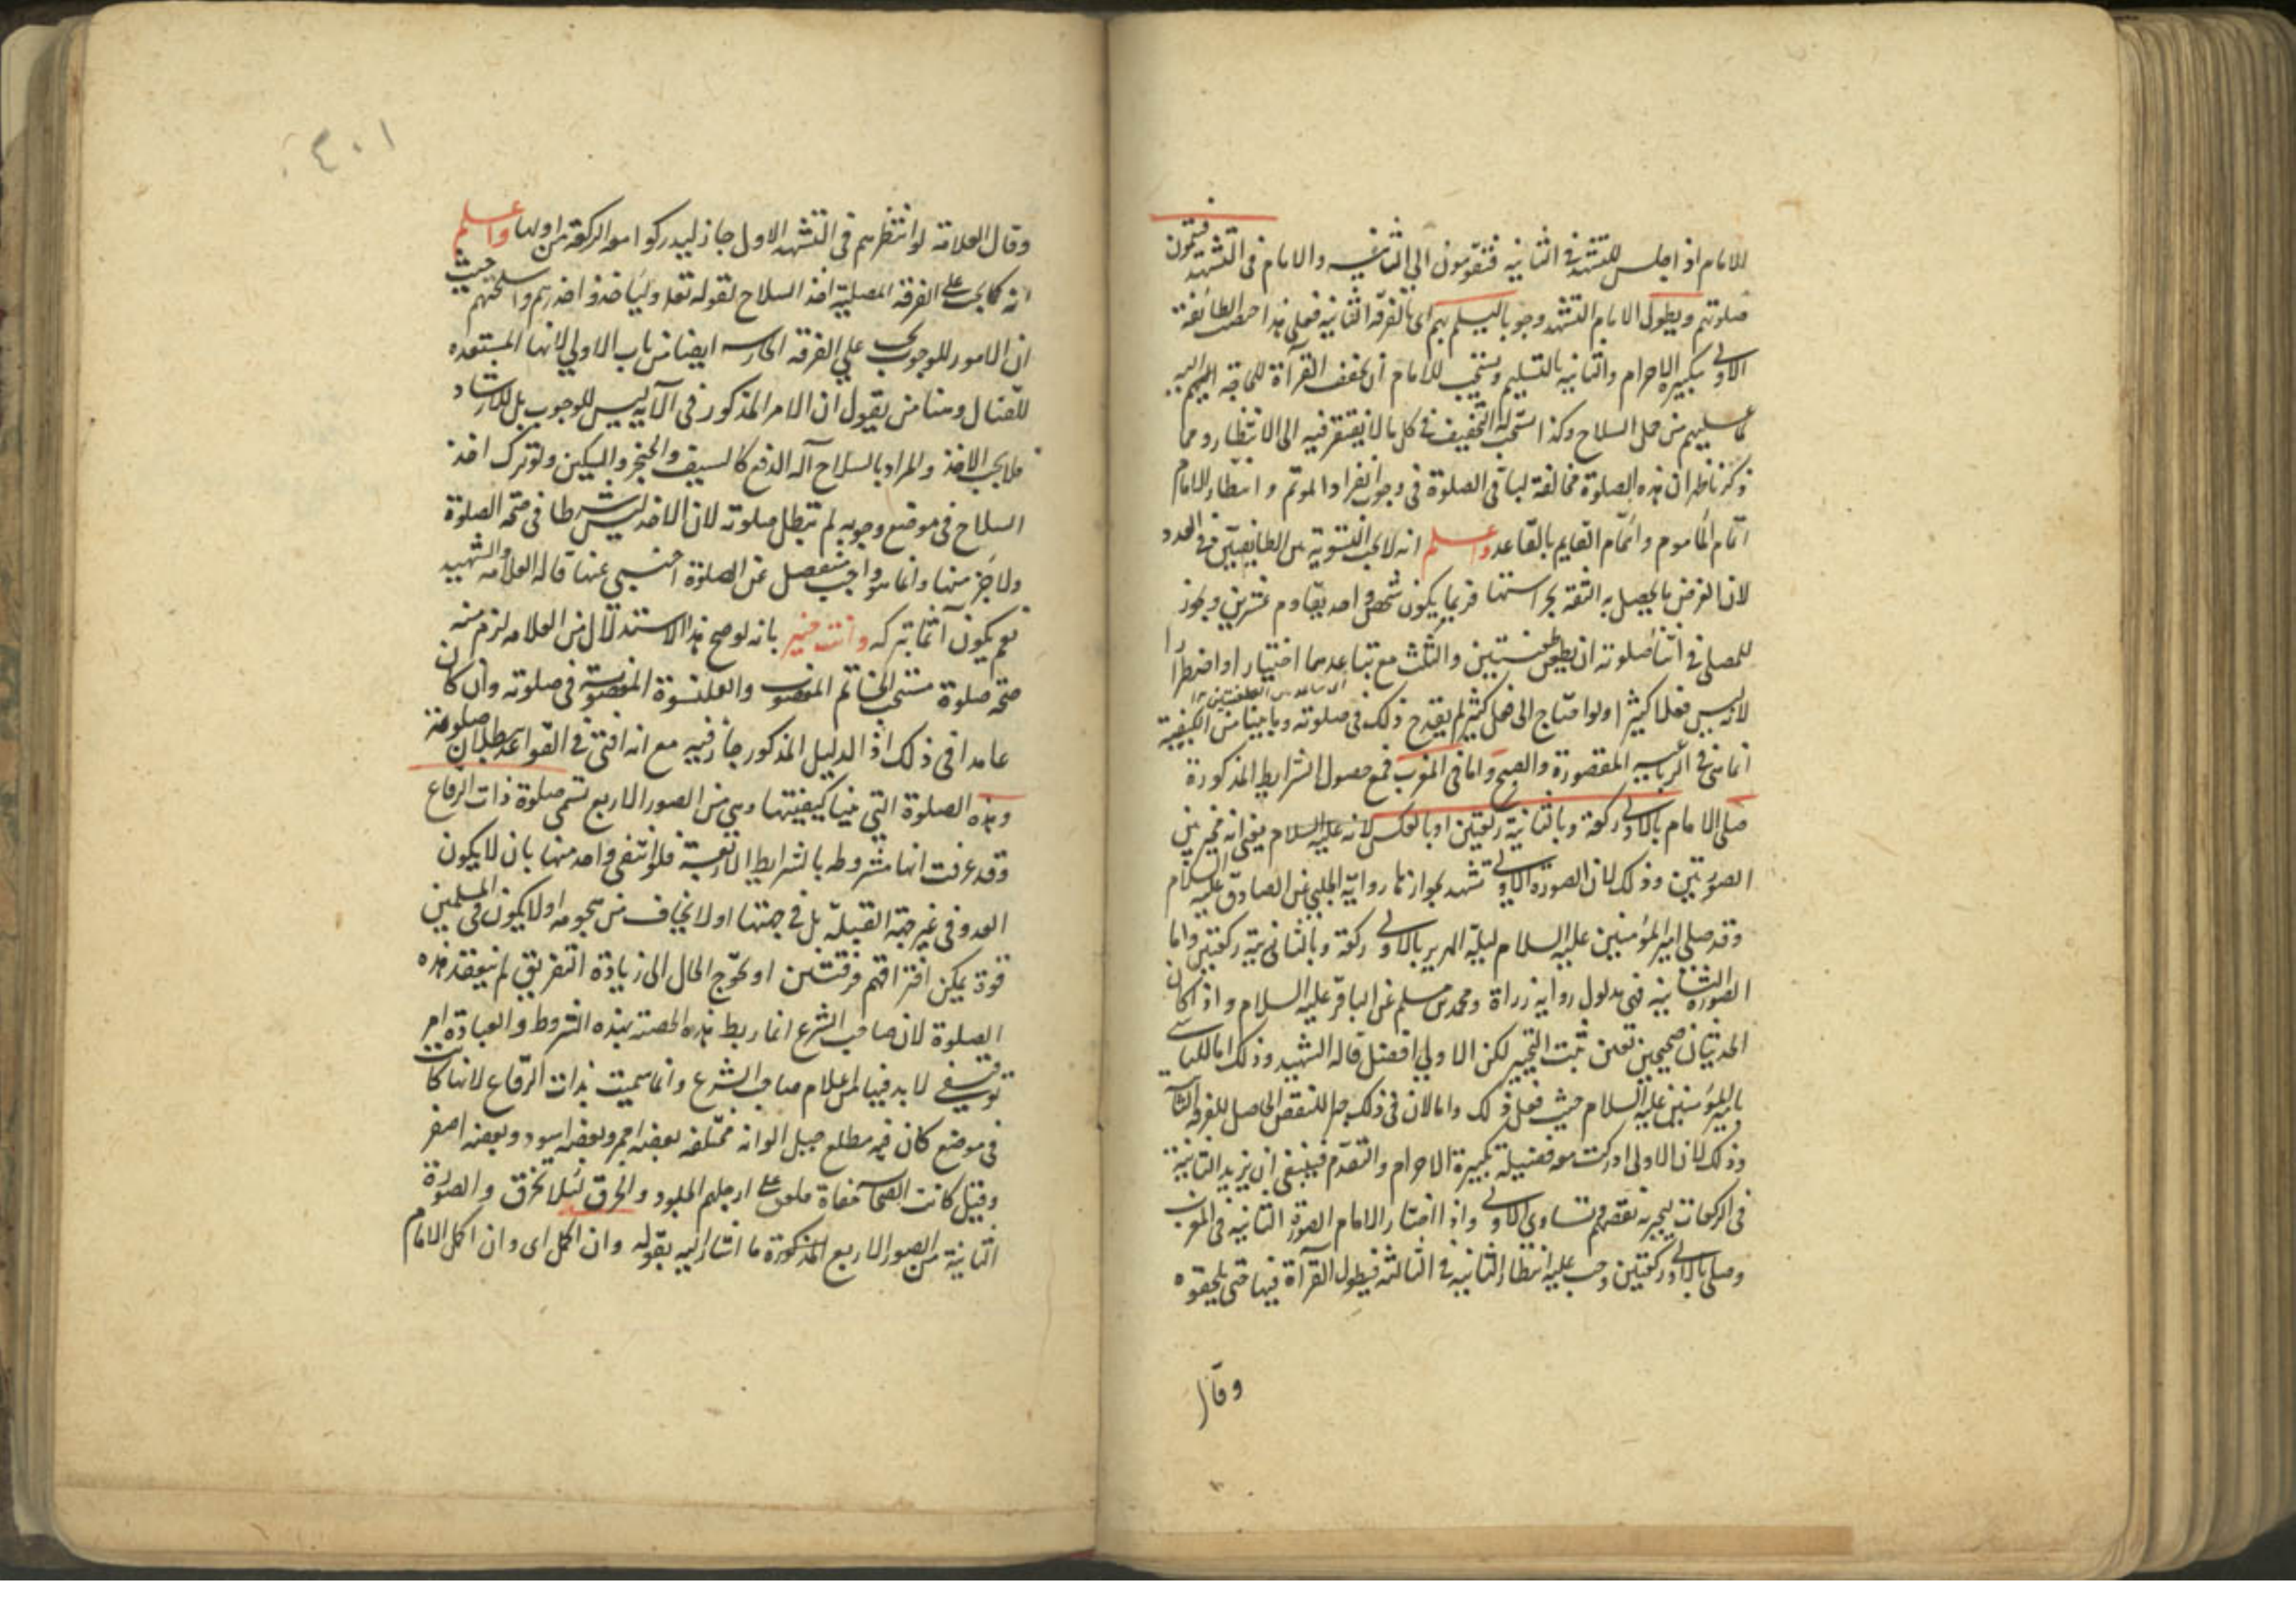 للامام اذا جلس للتشهد في الثانية فتقومون الى الثانية والامام في التشهد فيتمون
صلوتهم ويطول الامام التشهد وجوبا ليسلم بهم اى بالفرقة الثانية فعلى هذا حصلت الطائفة
الاولى تكبيرة الاحرام والثانية بالتسليم ويستحب للامام ان يخفف القرآة للحاقة
عليهم من حمل السلاح وكذا استحب له التخفيف في كل ما لا يفتقر فيه الى الانتظار ومما
ذكرنا ظهر ان هذه الصلوة مخالفة لباقي الصلوة في وجوب انفراد الموتم وانتظار الامام
اتمام الماموم وائتمام القايم بالقاعد واعلم انه لا يجب التسوية بين الطايفتين في العدد
لان الغرض ما يحصل به الثقة بحراستها فربما يكون شخص واحد يقاوم عشرين ويجوز
للمصلى في اثنا صلوته ان يطعن طعنتين والثلث مع تباعدهما اختيارا واضطرارا
لانه ليس فعلا كثيرا ولو احتاج الى فعل كثير لم يقدح ذلك في صلوته وما بينا من الكيفية
انما هى في الرباعية المقصورة والصبح واما في المغرب فمع حصول الشرايط المذكورة
صلى الامام بالاولى ركعة وبالثانية ركعتين او بالعكس لانه عليه السلام يعنى انه مخير بين
الصورتين وذلك لان الصورة الاولى تشهد بجوازها رواية الحلبي عن الصادق عليه السلام
وقد صلى امير المؤمنين عليه السلام ليلة الهرير بالاولى ركعة وبالثانية ركعتين واما
الصورة الثانية فهى مدلول رواية زرارة ومحمد بن مسلم عن الباقر عليه السلام واذا كان
الحديثان صحيحين تعين ثبت التخيير لكن الاولى افضل قاله الشهيد وذلك اما للتاسى
بامير المؤمنين عليه السلام حيث فعل ذلك واما لان في ذلك جبرا للنقص الحاصل للفرقة الثانية
وذلك لان الاولى ادركت معه فضيلة تكبيرة الاحرام والتقدم فينبغى ان يزيد الثانية
في الركعات ليجبر به نقصهم وتساوى الاولى واذا اختار الامام الصورة الثانية في المغرب
وصلى بالاولى ركعتين وجب عليه انتظار الثانية في الثالثة فيطول القرآة فيها حتى يلحقوه
وقال
٣٠١
وقال العلامة لو انتظرهم في التشهد الاول جاز ليدركوا معه الركعة من اولها واعلم
انه كما يجب على الفرقة المصلية اخذ السلاح لقوله تعالى ولياخذوا حذرهم واسلحتهم حيث
ان الامر للوجوب يجب على الفرقة الحارسة ايضا من باب الاولى لانها المستعدة
للقتال ومنا من يقول ان الامر المذكور في الآية ليس للوجوب بل للارشاد
فلا يجب الاخذ والمراد بالسلاح آلة الدفع كالسيف والخنجر والسكين ولو ترك اخذ
السلاح في موضع وجوبه لم تبطل صلوته لان الاخذ ليس شرطا في صحة الصلوة
ولا جزء منها وانما هو واجب منفصل عن الصلوة اجنبى عنها قاله العلامة والشهيد
نعم يكون آثما بتركه وانت خبير بانه لو صح هذا الاستدلال من العلامة لزم منه
صحة صلوة مستصحب الخاتم المغصوب والقلنسوة المغصوبة في صلوته وان كان
عامدا في ذلك اذ الدليل المذكور جار فيه مع انه افتى في القواعد ببطلان صلوته
وهذه الصلوة التي بينا كيفيتها وهى من الصور الاربع تسمى صلوة ذات الرقاع
وقد عرفت انها مشروطه بالشرايط الاربعة فلو انتفى واحد منها بان لا يكون
العدو في غير جهة القبلة بل في جهتها او لا يخاف من هجومه او لا يكون في المسلمين
قوة يمكن افتراقهم فرقتين او يحوج الحال الى زيادة التفريق لم ينعقد هذه
الصلوة لان صاحب الشرع انما ربط هذه الهيئة بهذه الشروط والعبادة امر
توقيفي لا بد فيها من اعلام صاحب الشرع وانما سميت بذات الرقاع لانها كانت
في موضع كان فيه مطلع جبل الوانه مختلفة بعضه احمر وبعضه اسود وبعضه اصفر
وقيل كانت الصحابة حفاة فلفوا على ارجلهم الجلود والخرق لئلا تحرق والصورة
الثانية من الصور الاربع المذكورة ما اشار اليه بقوله وان اكمل اى وان اكمل الامام